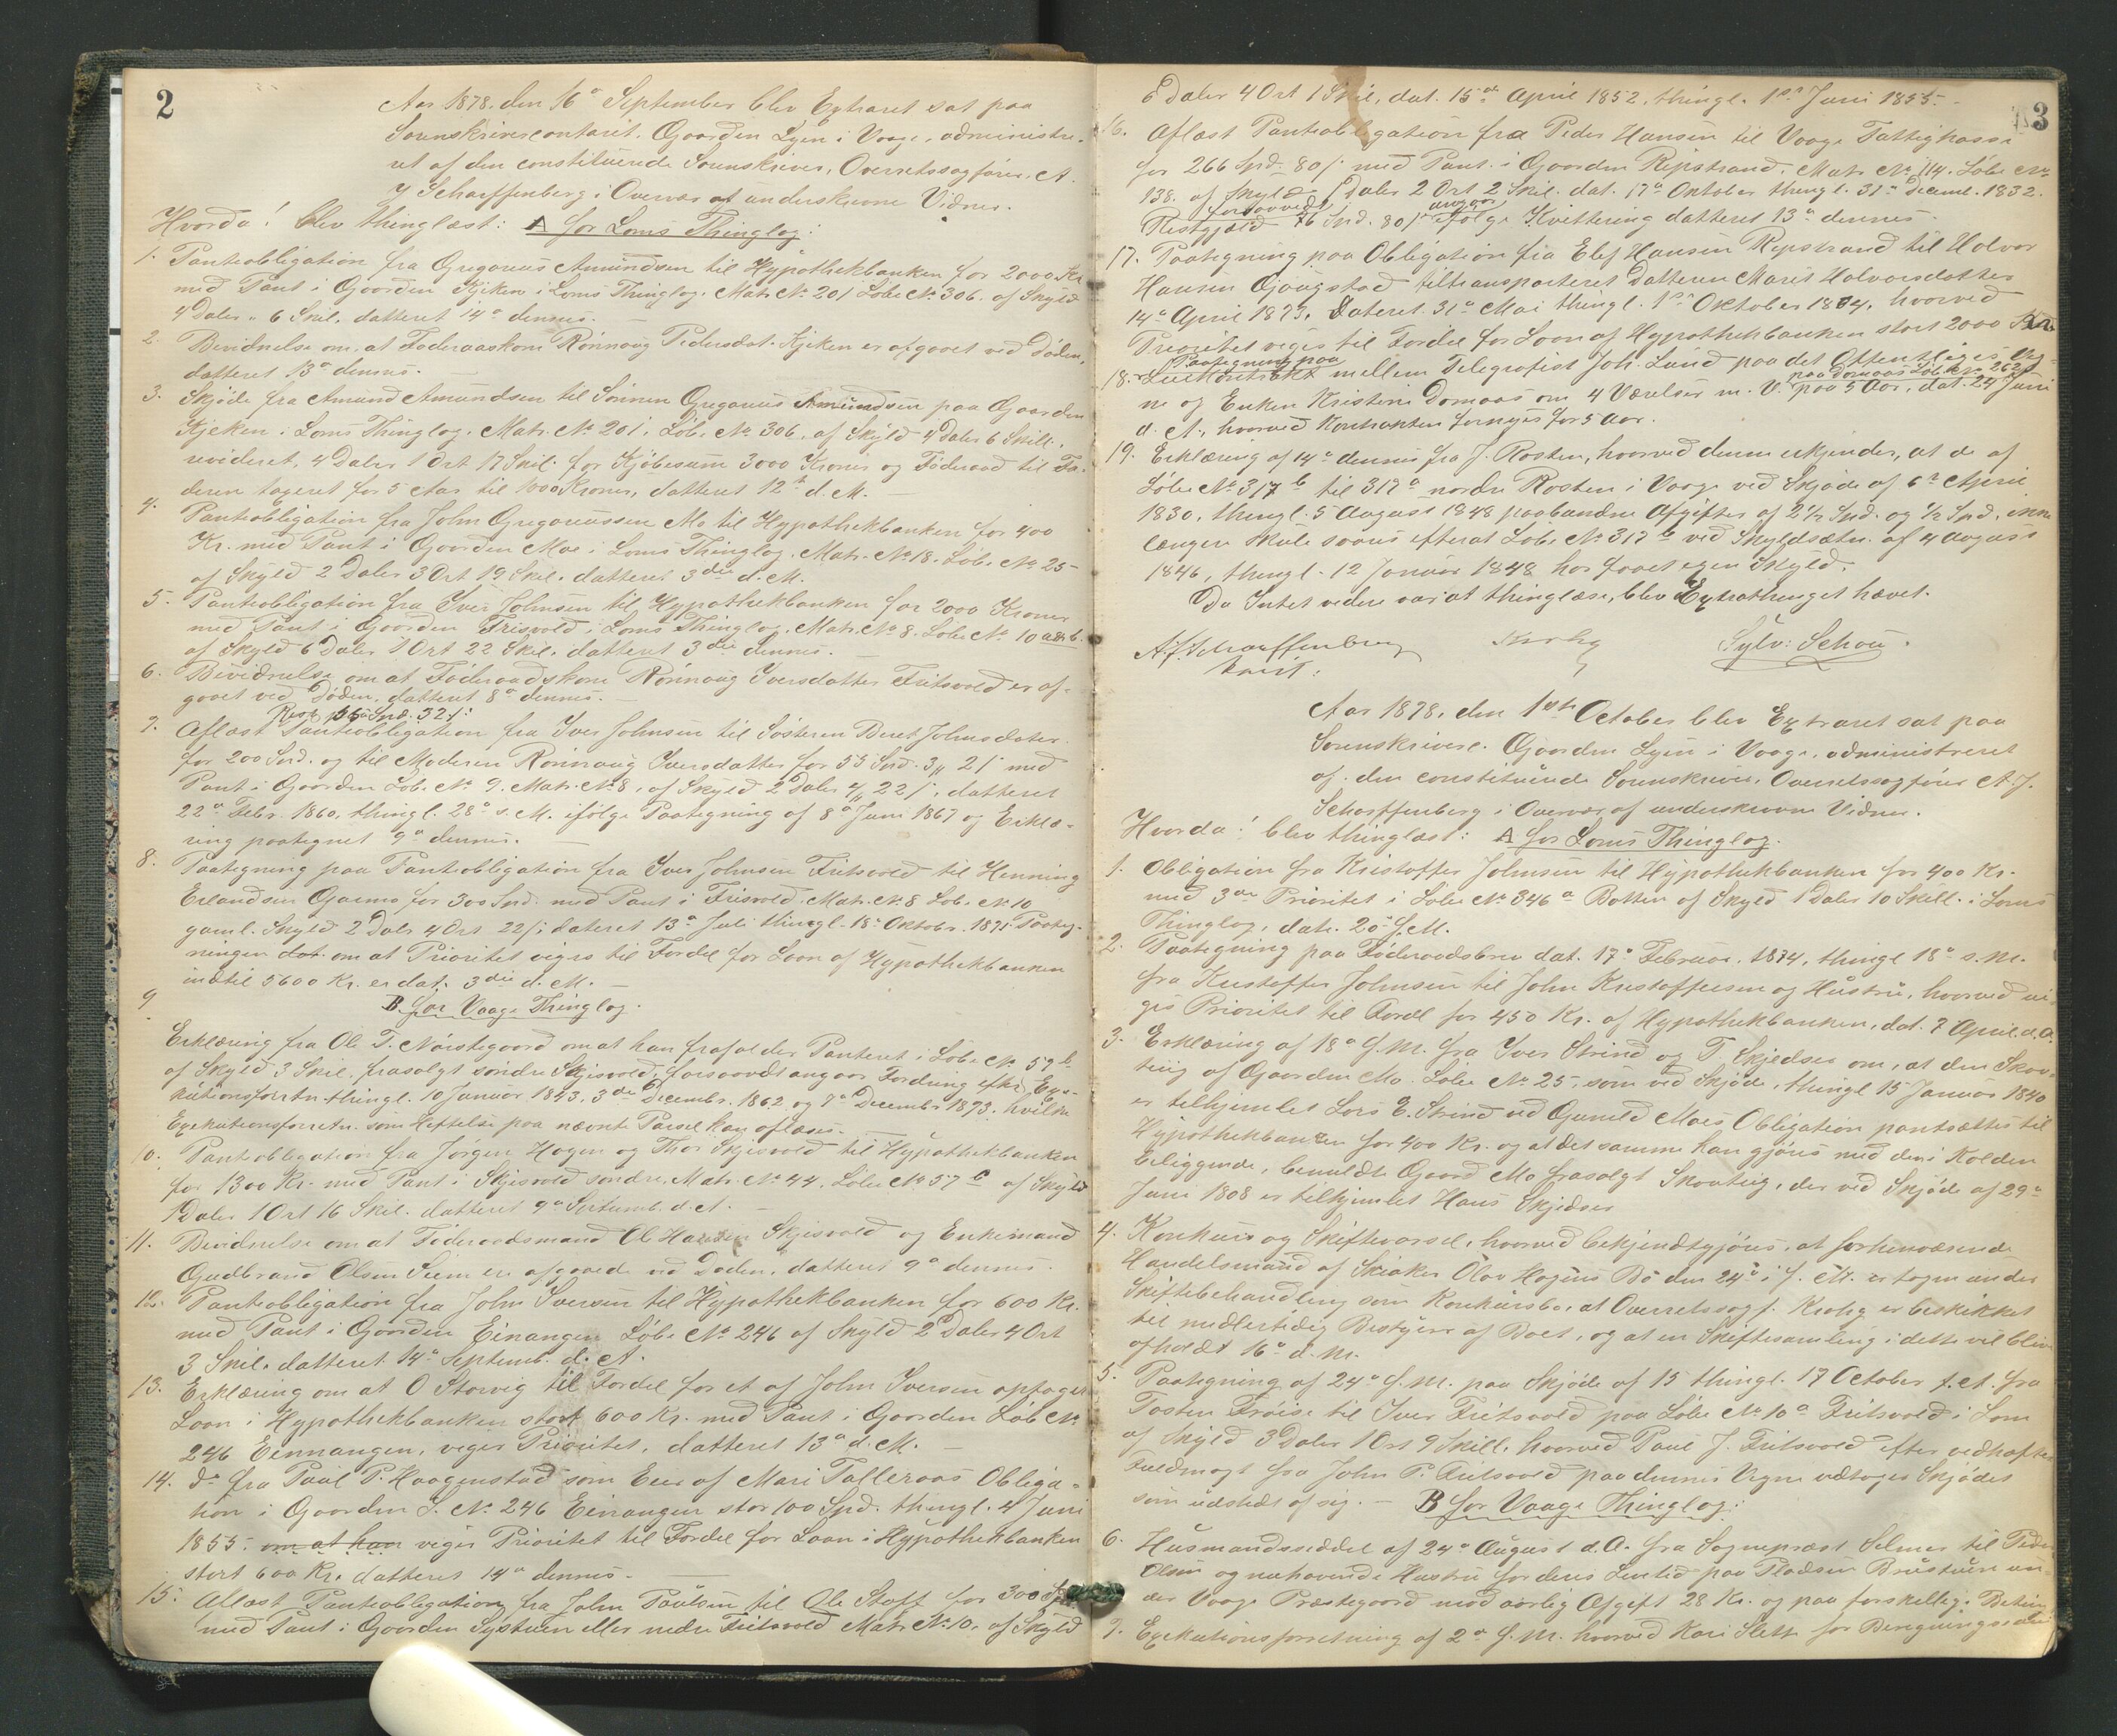 2
Aar 1878. den 16de September blev Extraret sat paa
Sorenskrivercontoret, Gaarden Lyen i Vaage, administre-
ret af den constituerede Sorenskriver, Overretssagfører A.
J Scharffenberg i Overvær af underskrevne Vidner.
Hvorda! blev thinglæst: A for Loms Thinglag:
1. Panteobligation fra Gregorius Amundsen til Hypothekbanken for 2000 Kr
med Pant i Gaarden Kjeken i Loms Thinglag. Matr. No 201 Løbe No 306. af Skyld
4 Daler " 6 Skil. datteret 14de dennes.
2. Bevidnelse om, at Føderaadskone Rønnaug Pedersdat. Kjeken er afgaaet ved Døden,
datteret 13de dennes.
3. Skjøde fra Amund Amundsen til Sønnen Gregorius Amundsen paa Gaarden
Kjeken i Loms Thinglag. Matr. No 201. Løb. No 306. af Skyld 4 Daler 6 Skill.
revideret, 4 Daler 1 Ort 17 Skil. for Kjøbesum 3000 Kroner og Føderaad til Fa-
deren taxeret for 5 Aar til 1000 Kroner, datteret 12te d. M.
4. Panteobligation fra John Gregoriussen Mo til Hypothekbanken for 400
Kr. med Pant i Gaarden Moe i Loms Thinglag. Matr. No 18. Løb. No 25
af Skyld 2 Daler 3 Ort 19 Skil. datteret 3die d. M.
5. Panteobligation fra Iver Johnsen til Hypothekbanken for 2000 Kroner
med Pant i Gaarden Frisvold i Loms Thinglag. Matr. No 8. Løbe No 10 a & b.
af Skyld 6 Daler 1 Ort 22 Skil. datteret 3die dennes.
6. Bevidnelse om at Føderaadskone Rønnaug Iversdatter Fritsvold er af-
gaaet ved Døden, datteret 8de dennes.
7. Aflæst Panteobligation fra Iver Johnsen til Søsteren Beret Johnsdatter
for 200 Spd. og til Moderen Rønnaug Iversdatter for 55 Spd. 3 " 21 med
Pant i Gaarden Løb. No 9. Matr. No 8, af Skyld 2 Daler 4 " 22 /, datteret
22de Febr. 1860, thingl. 28de s. M. ifølge Paategning af 8de Juni 1867 og Erklæ-
ring paategnet 9de dennes.
8. Paategning paa Panteobligation fra Iver Johnsen Fritsvold til Henning
Erlandsen Garmo for 300 Spd. med Pant i Frisvold. Matr. No 8 Løb. No 10
gaml. Skyld 2 Dal. 4 Ort. 22 /: dateret 13de Juli thingl. 18de Oktobr. 1871. Paateg-
ningen dat. om at Prioritet viges til Fordel for Laan af Hypothekbanken
indtil 5600 Kr. er dat. 3die d. M.
9. B for Vaage Thinglag.
Erklæring fra Ole T. Nørstegaard om at han frafalder Panteret i Løbe No 59 b
af Skyld 3 Skil. frasolgt søndre Skjisvold, forsaavidt angaar Fordring efter Exe-
kutionsforretn. thingl. 10 Januar 1843. 3die Decembr. 1862 og 7de Decembr 1873. hvilke
Exekutionsforretn. som Heftelse paa nævnte Parsel kan aflæses.
10. Panteobligation fra Jørgen Hagen og Thor Skjisvold til Hypothekbanken
for 1300 Kr. med Pant i Skjisvold søndre, Matr. No 44. Løbe No 57 b af Skyld
1 Daler 1 Ort 16 Skil. datteret 9de Septemb. d. A.
11. Bevidnelse om at Føderaadsmand Ole Hansen Skjisvold og Enkemand
Gudbrand Olsen Siem er afgaaede ved Døden, datteret 9de dennes.
12. Panteobligation fra John Iversen til Hypothekbanken for 600 Kr.
med Pant i Gaarden Einangen Løbe No 246 af Skyld 2 Daler 4 Ort
3 Skil. datteret 14de Septemb. d. A.
13. Erklæring om at O Storvig til Fordel for et af John Iversen optaget
Laan i Hypothekbanken stort 600 Kr. med Pant i Gaarden Løb No
246 Einnangen, viger Prioritet, datteret 13de d. M.
14. Do fra Paul P. Haagenstad som Eier af Mari Talleraas Obliga-
tion i Gaarden L. No 246 Einangen stor 100 Spd. thingl. 4 Juni
1855. om at han viger Prioritet til Fordel for Laan i Hypothekbanken
stort 600 Kr. datteret 14de dennes.
15. Aflæst Panteobligation fra John Paulsen til Ole Staff for 300 Spd
med Pant i Gaarden Systuen eller nedre Fritsvold Matr No 10. af Skyld
3
6 Daler 4 Ort 1 Skil, dat. 15de April 1852, thingl. 1ste Juni 1855.
16. Aflæst Panteobligation fra Peder Hansen til Vaage Fattigkasse
for 266 Spd. 80 / med Pant i Gaarden Repstrand. Matr. No 114. Løbe No
138. af Skyld 1 Daler 2 Ort 2 Skil. dat. 17de Oktober thingl. 31te Decemb. 1832.
forsaavidt angaar
Restgjæld 76 Spd. 80 / ifølge Kvittering datteret 13de dennes.
17. Paategning paa Obligation fra Elef Hansen Repstrand til Halvor
Hansen Gaugstad tiltransporteret Datteren Marit Halvorsdatter
14de April 1873, Dateret 31te Mai thingl. 1ste Oktober 1834, hvorved
Prioritet viges til Fordel for Laan af Hypothekbanken stort 2000
Paategning paa
18. Leiekontrakt mellem Telegrafist Joh. Lund paa det Offentliges Veg-
paa Domaas Løb. No 262
ne og Enken Kristine Domaas om 4 Værelser m. V. paa 5 Aar, dat. 24 Juni
d. A., hvorved Kontrakten fornyes for 5 Aar.
19. Erklæring af 14de dennes fra J. Rosten, hvorved denne erkjender, at de af
Løbe No 317 b til 312 a nordre Rosten i Vaage ved Skjøde af 6te April
1830, thingl. 5 August 1848 paabundne Afgifter af 2 1/2 Spd. og 1/2 Spd. ikke
længere skule svares efterat Løb. No 317 b ved Skyldsætn. af 4 August
1846, thingl. 12 Januar 1848 har faaet egen Skyld.
Da Intet videre var at thinglæse, blev Extrathinget hævet.
A. J. Scharffenberg
konst:
Sylv: Schou.
Aar 1878. den 1ste October blev Extraret sat paa
Sorenskriverc. Gaarden Lyen i Vaage, administreret
af den constituerede Sorenskriver, Overretssagfører A. J.
Scharffenberg i Overvær af underskrevne Vidner.
Hvorda! blev thinglæst: A for Loms Thinglag.
1. Obligation fra Kristoffer Johnsen til Hypothekbanken for 400 Kr.
med 3die Prioritet i Løbe No 346 a Botten af Skyld 1 Daler 10 Skill. i Loms
Thinglag, dat. 20de f. M.
2. Paategning paa Føderaadsbrev dat. 17de Februar 1874, thingl 18de s. M.
fra Kristoffer Johnsen til John Kristoffersen og Hustru, hvorved vi-
ges Prioritet til Fordel for 450 Kr. af Hypothekbanken, dat. 7 April d. A.
3. Erklæring af 18de f. M. fra Iver Strind og T. Skjedser om, at den Skov-
teig af Gaarden Mo. Løbe No 25, som ved Skjøde, thingl 15 Januar 1840
er tilhjemlet Lars E. Strind ved Gunild Moes Obligation pantsættes til
Hypothekbanken for 400 Kr. og at det samme kan gjøres med den i Kolden
beliggende, bemeldte Gaard Mo frasolgt Skovteig, der ved Skjøde af 29de
Juni 1808 er tilhjemlet Hans Skjedser
4. Konkurs og Skiftevarsel, hvorved bekjendtgjøres, at forhenværende
Handelsmand af Skiaker Olav Hagens Bo den 24de i f. M. er tagen under
Skiftebehandling som Konkursbo, at Overretssagf. Krohg er beskikket
til midlertidig Bestyrer af Boet, og at en Skiftesamling i dette vil blive
afholdt 16de d. M.
5. Paategning af 24de f. M. paa Skjøde af 15 thingl. 17 October f. A. fra
Tosten Frøise til Iver Fritsvold paa Løbe No 10 a Fritsvold i Lom
af Skyld 3 Daler 1 Ort 9 Skill. hvorved Paul J. Fritsvold efter vedhæftet
Fuldmagt fra John P. Fritsvold paa dennes Vegne vedtager Skjødet
som udstedt af sig. B for Vaage Thinglag:
6. Husmandsseddel af 24de August d. A. fra Sognepræst Selmer til Peder
Olsen og nuhavende Hustru for deres Levetid paa Pladsen Brustuen un-
der Vaage Præstegaard mod aarlig Afgift 28 Kr. og paa forskellig. Beting
7. Exekutionsforretning af 2de f. M. hvorved Kari Slette for Beregningssum